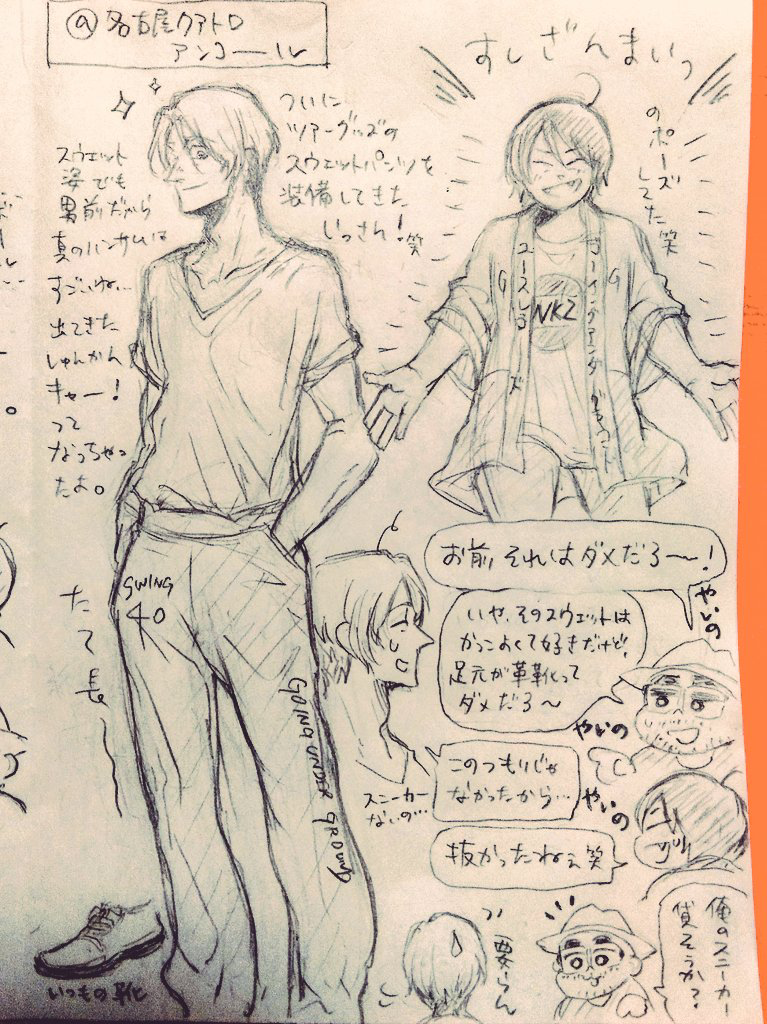 @名古屋クアトロ
アンコール
すしざんまいっ
のポーズ
してた笑
ついに
ツアーグッズの
スウェットパンツを
装備してきた
じっさん!笑
スウェット
姿でも
男前だから
真のハンサムは
すごいね…
出てきた
しゅんかん
キャー!
って
なっちゃっ
たよ。
ユースレス
ゴーイングアンダーグラウンド
NKZ
たて長〜
SWING
40
GOING UNDER GROUND
お前、それはダメだろ〜!
やいの
いや、そのスウェットは
かっこよくて好きだけど、
足元が革靴って
ダメだろ〜
やいの
このつもりじゃ
なかったから…
スニーカー
ないの…
やいの
抜かったねぇ笑
俺のスニーカー
貸そうか?
要らん
いつもの靴